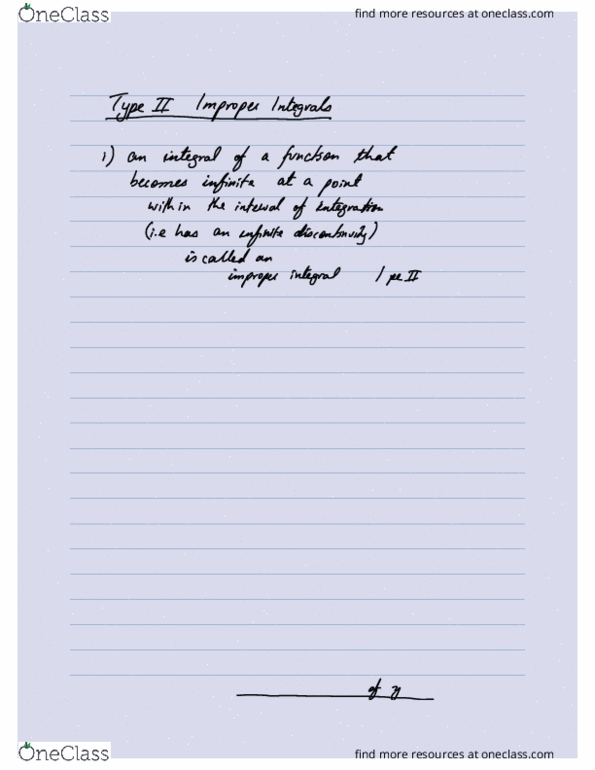 OneClass
find more resources at oneclass.com
Type II Improper Integrals
1) an integral of a function that
becomes infinite at a point
within the interval of integration
(i.e has an infinite discontinuity)
is called an
improper integral pe II
of
OneClass
find more resources at oneclass.com